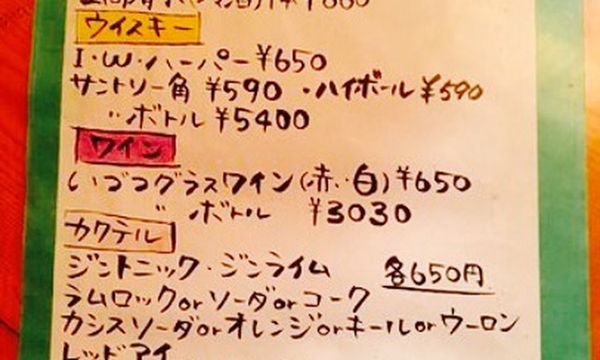 ウイスキー
I・W・ハーパー ¥650
サントリー角 ¥590 ・ハイボール ¥590
〃 ボトル ¥5400
ワイン
いづつグラスワイン(赤・白) ¥650
〃 ボトル ¥3030
カクテル
ジントニック・ジンライム 各650円
ラムロックorソーダorコーク
カシスソーダorオレンジorキールorウーロン
レッドアイ